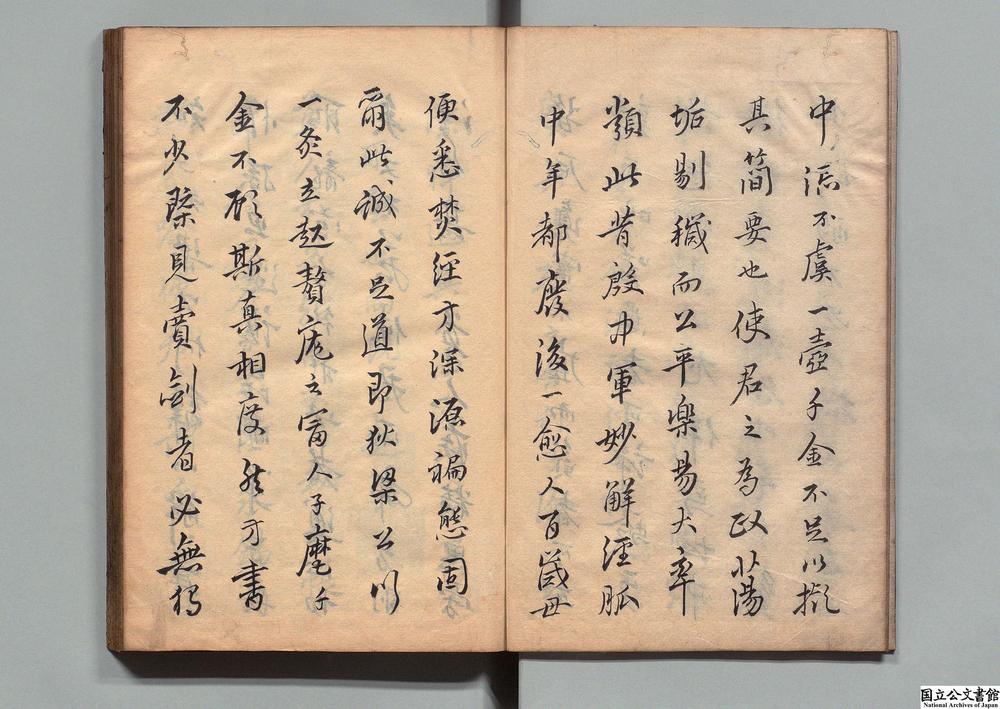 中流不虞一壺千金不足以擬
其簡要也使君之為政蕩
垢剔穢而公平樂易大率
類此昔殷中軍妙解經脈
中年都廢後一愈人百歲母
便悉焚經方深源褊態固
爾此誠不足道即狄梁公以
一灸立起贅疣之富人子麾千
金不顧斯真相度然方書
不少槩見賣劍者必無
国立公文書館
National Archives of Japan